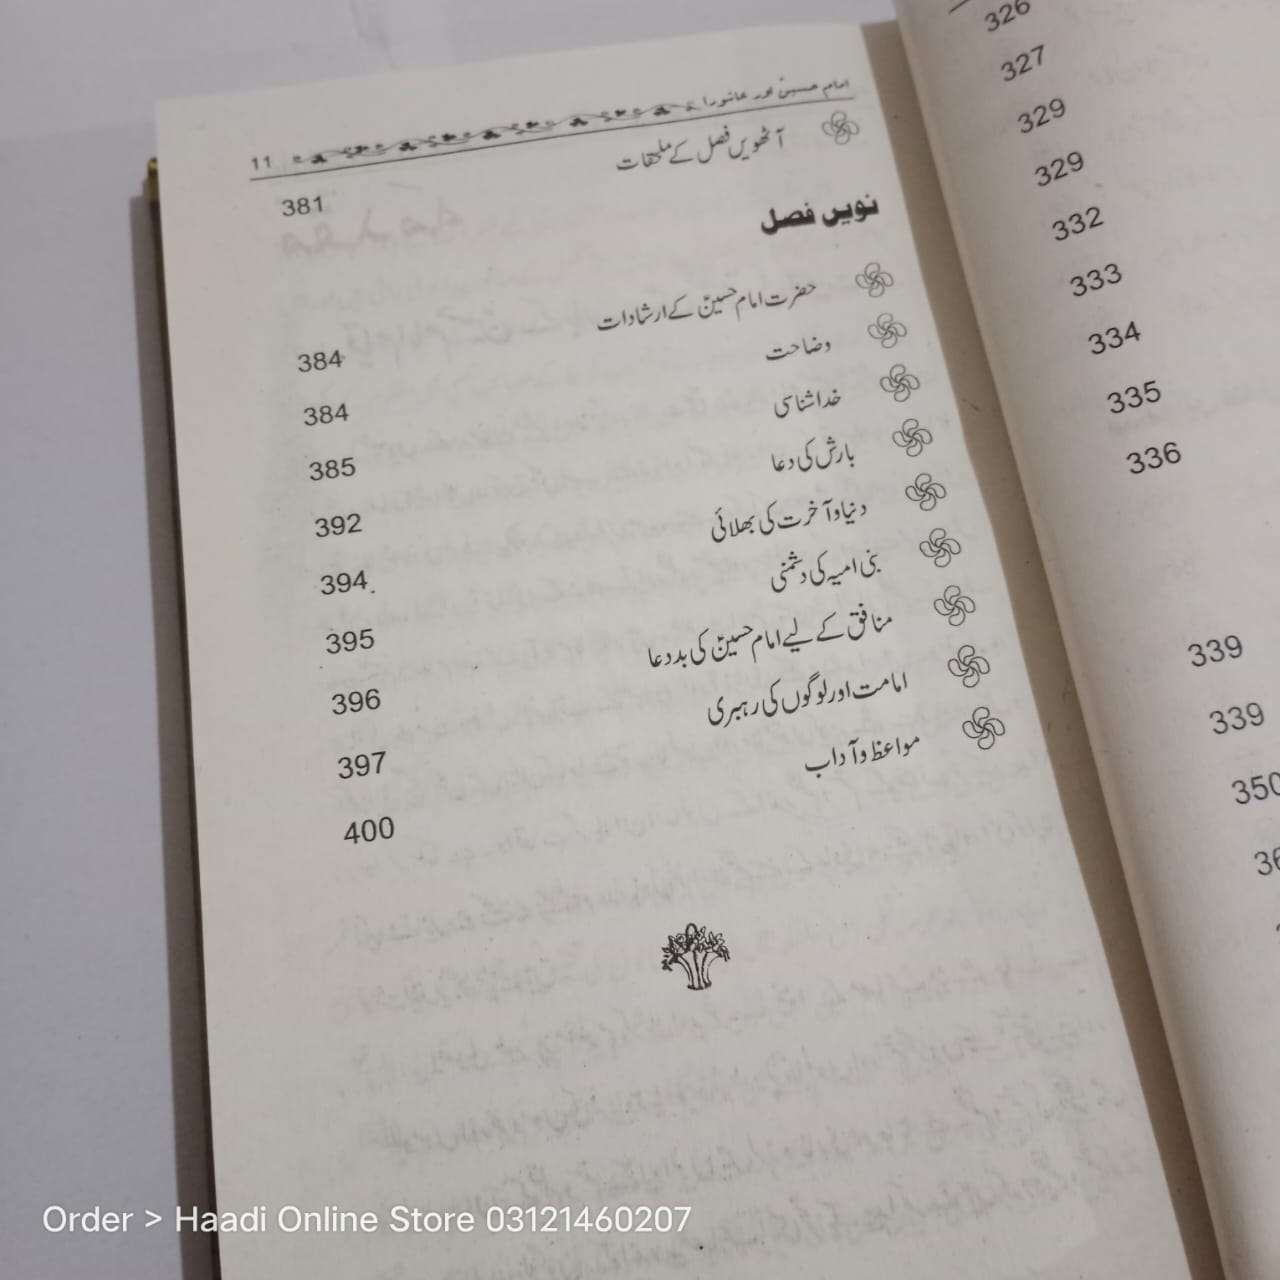 امام حسینؑ اور عاشورا
11
آٹھویں فصل کے ملحقات
381
نویں فصل
حضرت امام حسینؑ کے ارشادات
384
وضاحت
384
خداشناسی
385
بارش کی دعا
392
دنیا و آخرت کی بھلائی
394
بنی امیہ کی دشمنی
395
منافق کے لیے امام حسینؑ کی بددعا
396
امامت اور لوگوں کی رہبری
397
مواعظ و آداب
400
326
327
329
329
332
333
334
335
336
339
339
350
Order > Haadi Online Store 03121460207